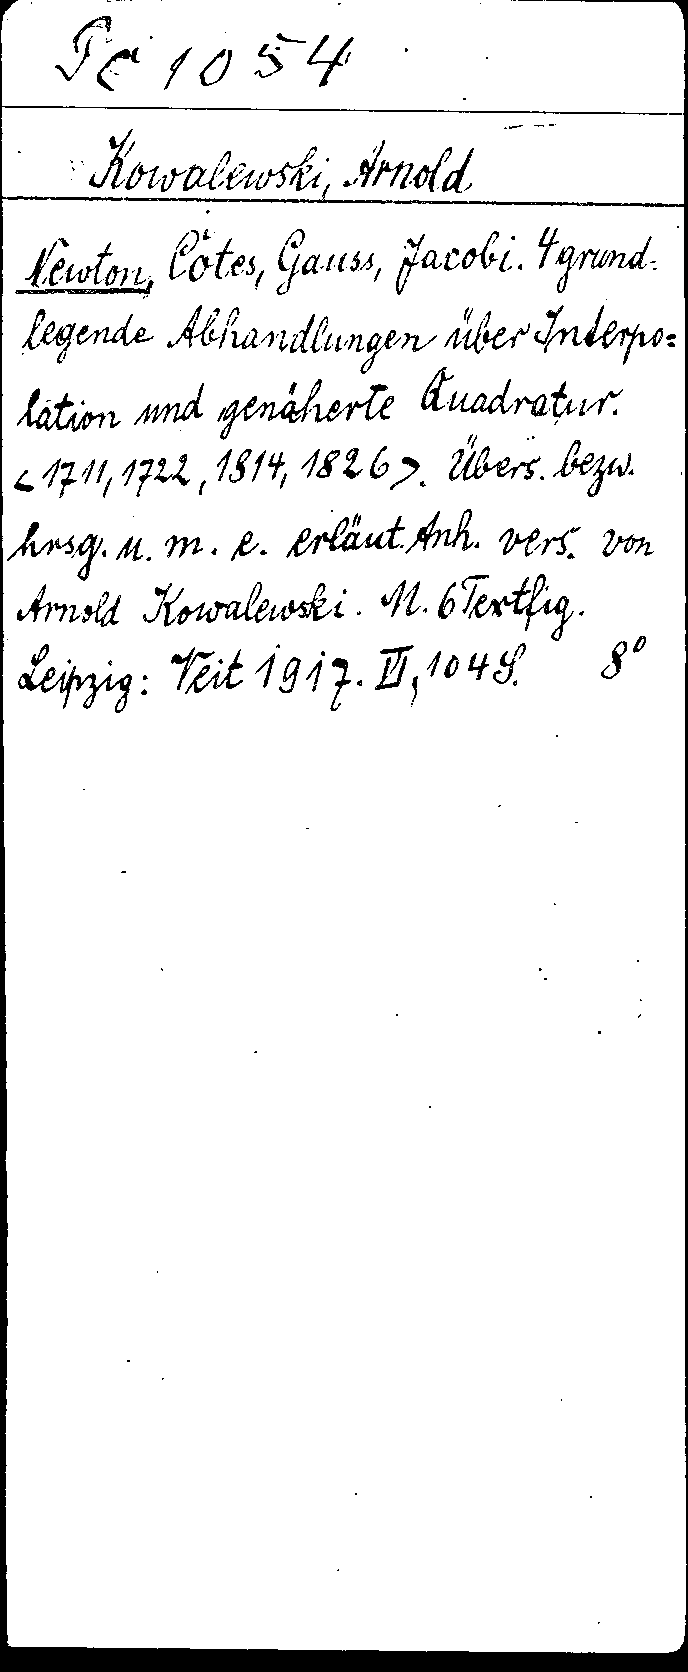 Pc 1054
Kowalewski, Arnold
Newton, Cotes, Gauss, Jacobi. 4 grund-
legende Abhandlungen über Interpo=
lation und genäherte Quadratur.
<1711, 1722, 1814, 1826>. Übers. bezw.
hrsg. u. m. e. erläut. Anh. vers. von
Arnold Kowalewski. M. 6 Textfig.
Leipzig: Veit 1917. VI, 104 S. 8°